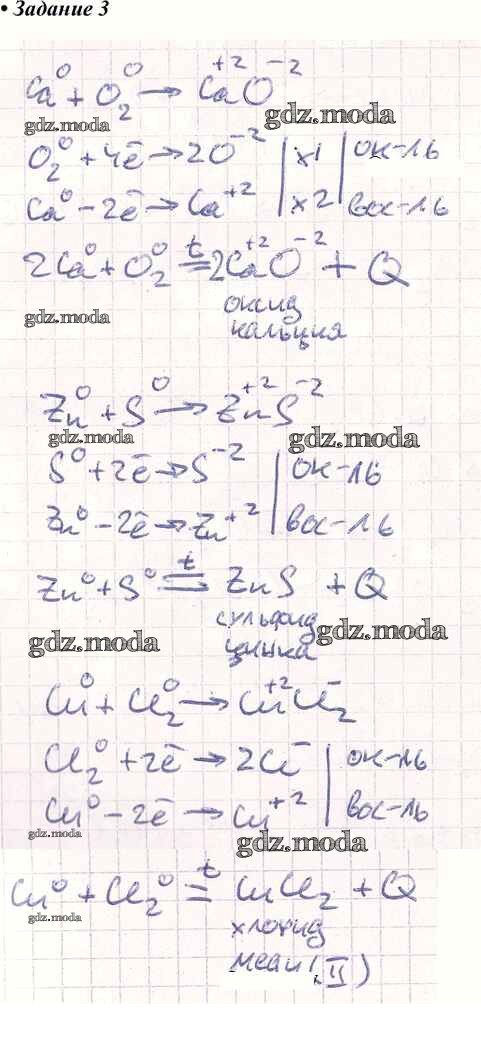 • Задание 3
Ca⁰ + O₂⁰ → Ca⁺²O⁻²
gdz.moda
gdz.moda
O₂⁰ + 4ē → 2O⁻² | x1 | ок-ль
Ca⁰ - 2ē → Ca⁺² | x2 | вос-ль
2Ca⁰ + O₂⁰ =ᵗ 2Ca⁺²O⁻² + Q
gdz.moda
оксид
кальция
Zn⁰ + S⁰ → Zn⁺²S⁻²
gdz.moda
gdz.moda
S⁰ + 2ē → S⁻² | ок-ль
Zn⁰ - 2ē → Zn⁺² | вос-ль
Zn⁰ + S⁰ =ᵗ ZnS + Q
сульфид
gdz.moda
gdz.moda
цинка
Cu⁰ + Cl₂⁰ → Cu⁺²Cl₂⁻
Cl₂⁰ + 2ē → 2Cl⁻ | ок-ль
Cu⁰ - 2ē → Cu⁺² | вос-ль
gdz.moda
gdz.moda
Cu⁰ + Cl₂⁰ =ᵗ CuCl₂ + Q
gdz.moda
хлорид
меди (II)